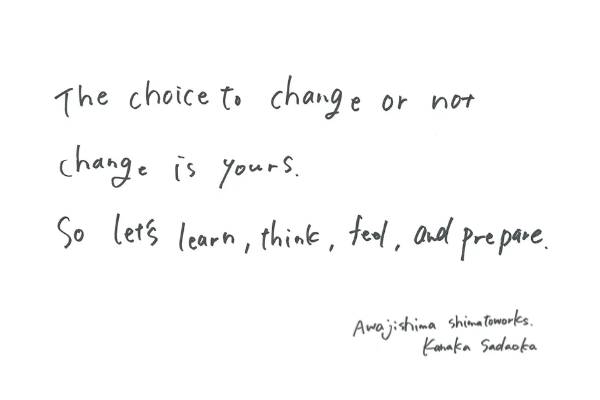 The choice to change or not
change is yours.
So let's learn, think, feel, and prepare.
Awajishima shimatoworks.
Kanaka Sadaoka